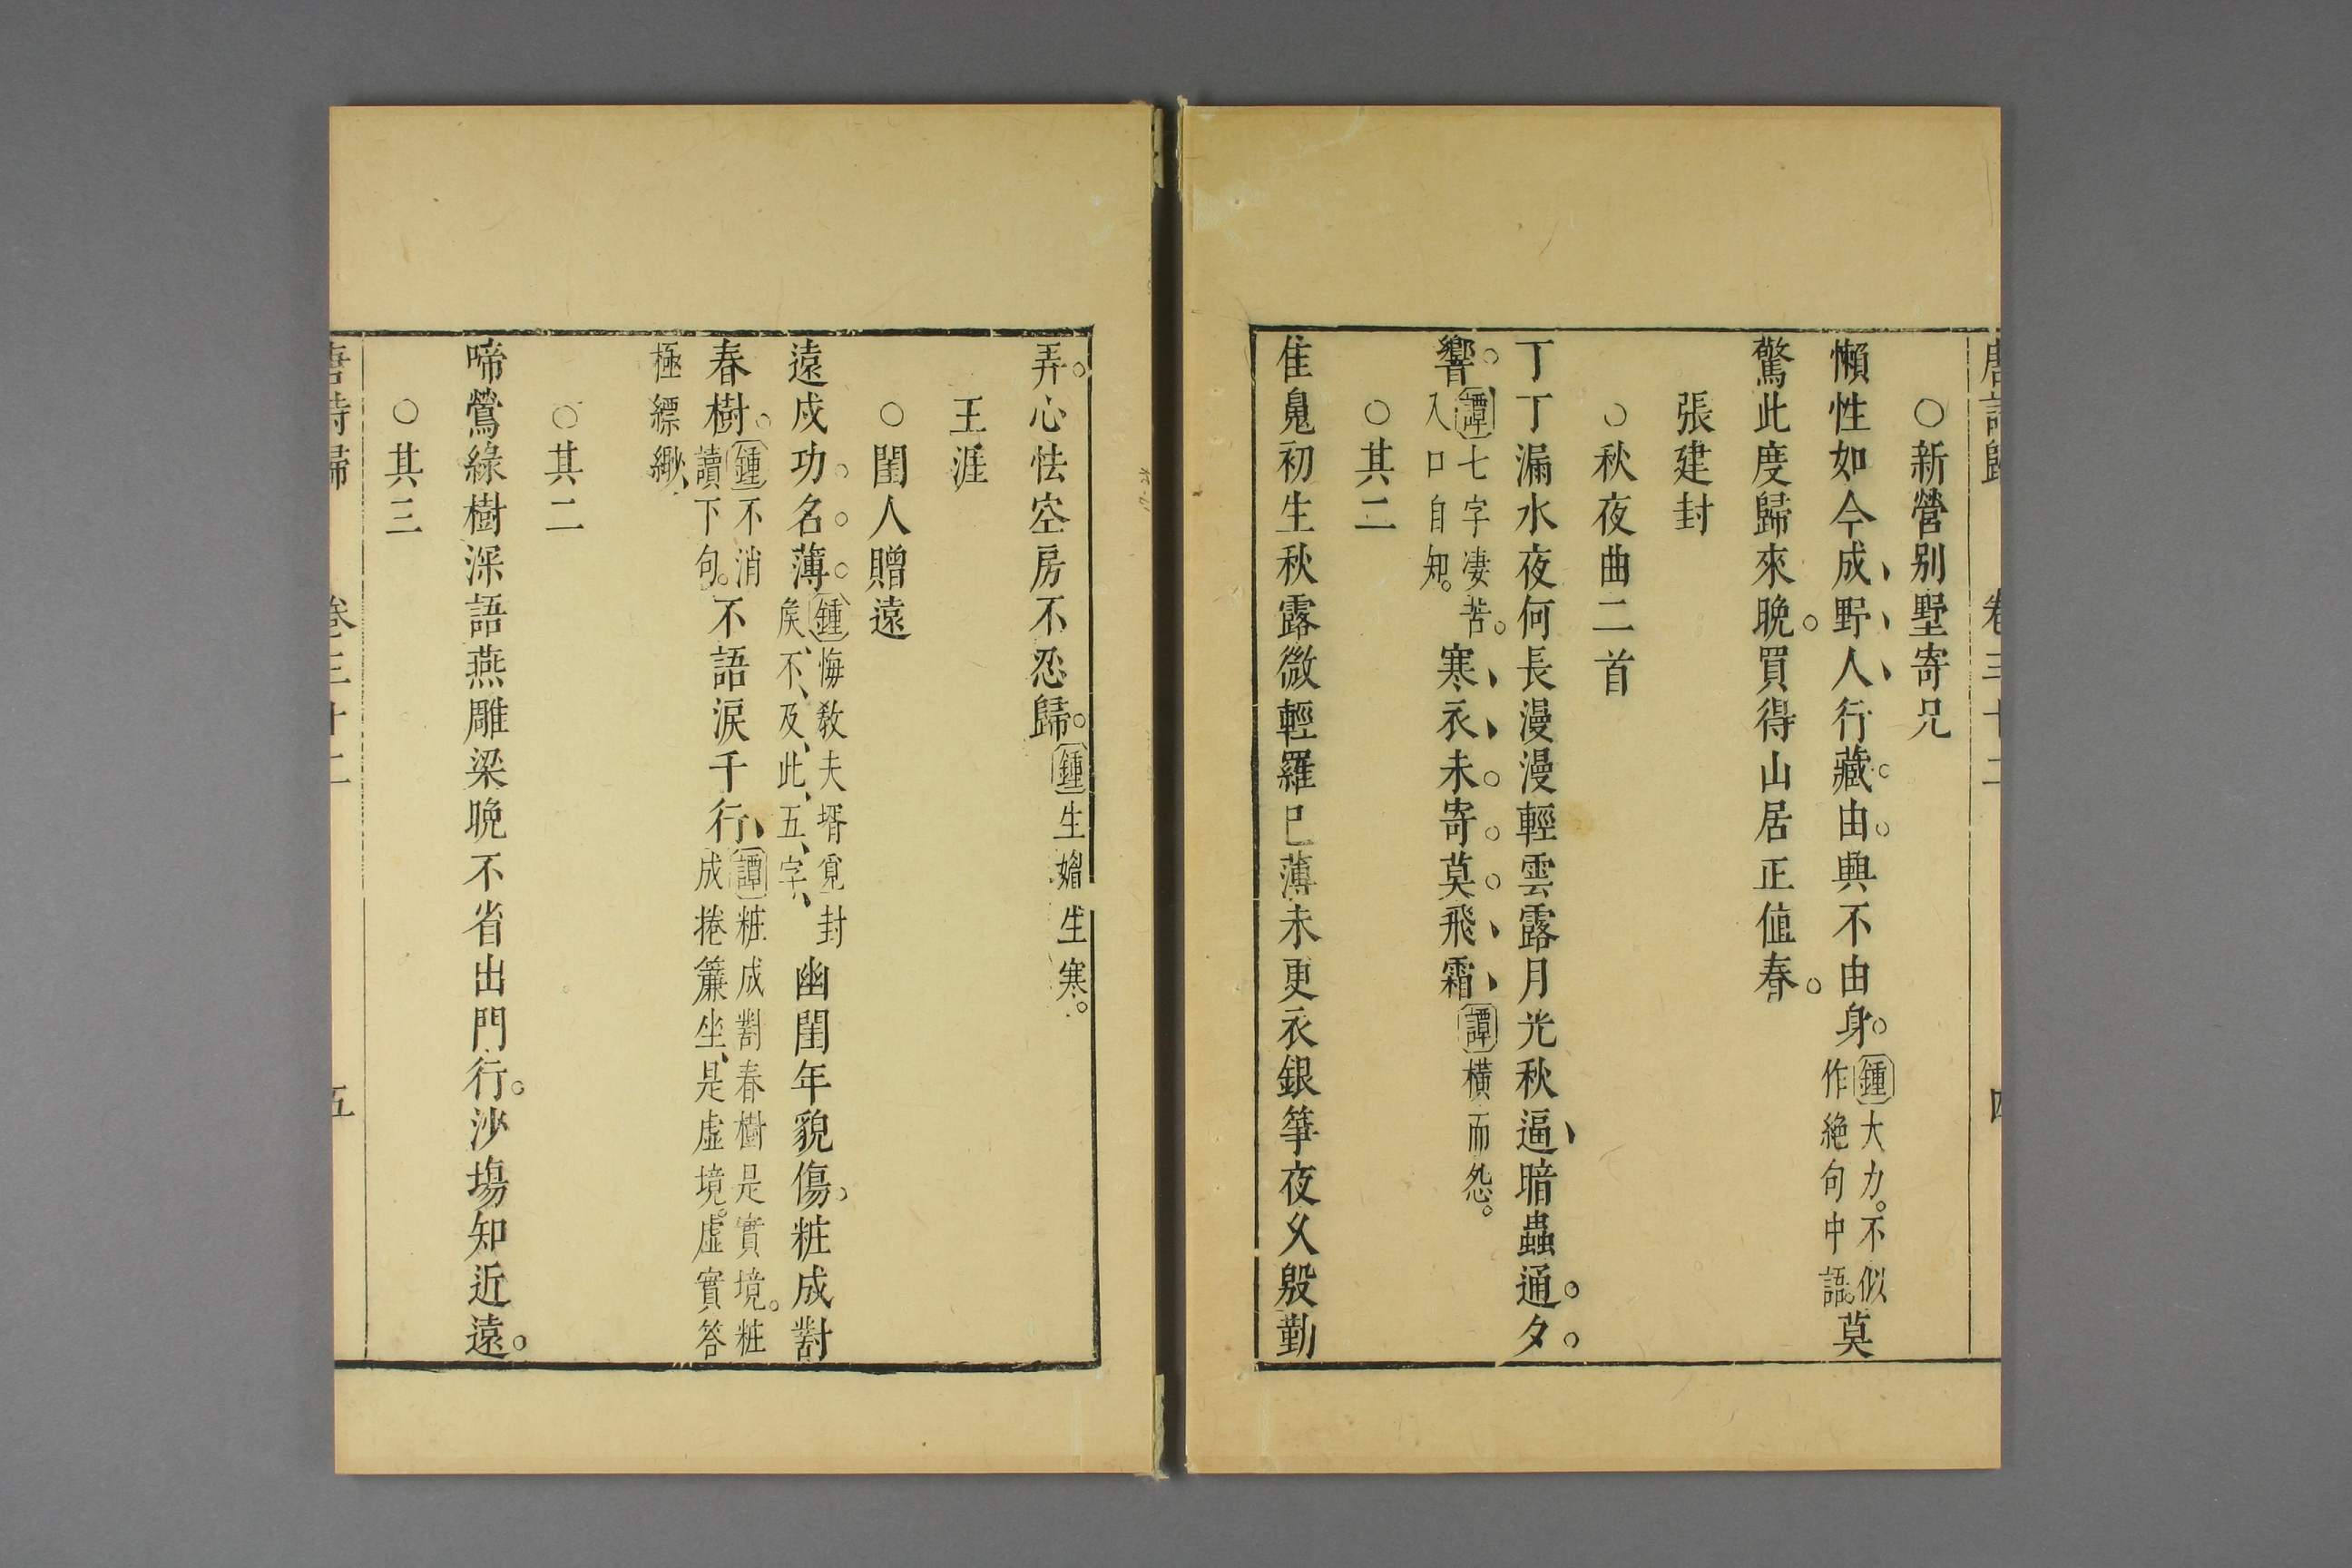 唐詩歸 卷三十二 四
○新營别墅寄兄
懶性如今成野人行藏由興不由身鍾大力不似
作絶句中語莫
驚此度歸來晚買得山居正值春
張建封
○秋夜曲二首
丁丁漏水夜何長漫漫輕雲露月光秋逼暗蟲通夕
響譚七字凄苦
入口自知寒衣未寄莫飛霜譚橫而怨
○其二
隹鬼初生秋露微輕羅已薄未更衣銀箏夜久殷勤
弄心怯空房不忍歸鍾生媚生寒
王涯
○閨人贈遠
遠戍功名薄鍾悔教夫壻覓封
矦不及此五字幽閨年貌傷粧成對
春樹鍾不消
讀下句不語淚千行譚粧成對春樹是實境粧
成捲簾坐是虛境虛實答
極縹緲
○其二
啼鶯綠樹深語燕雕梁晚不省出門行沙場知近遠
○其三
唐詩歸 卷三十二 五